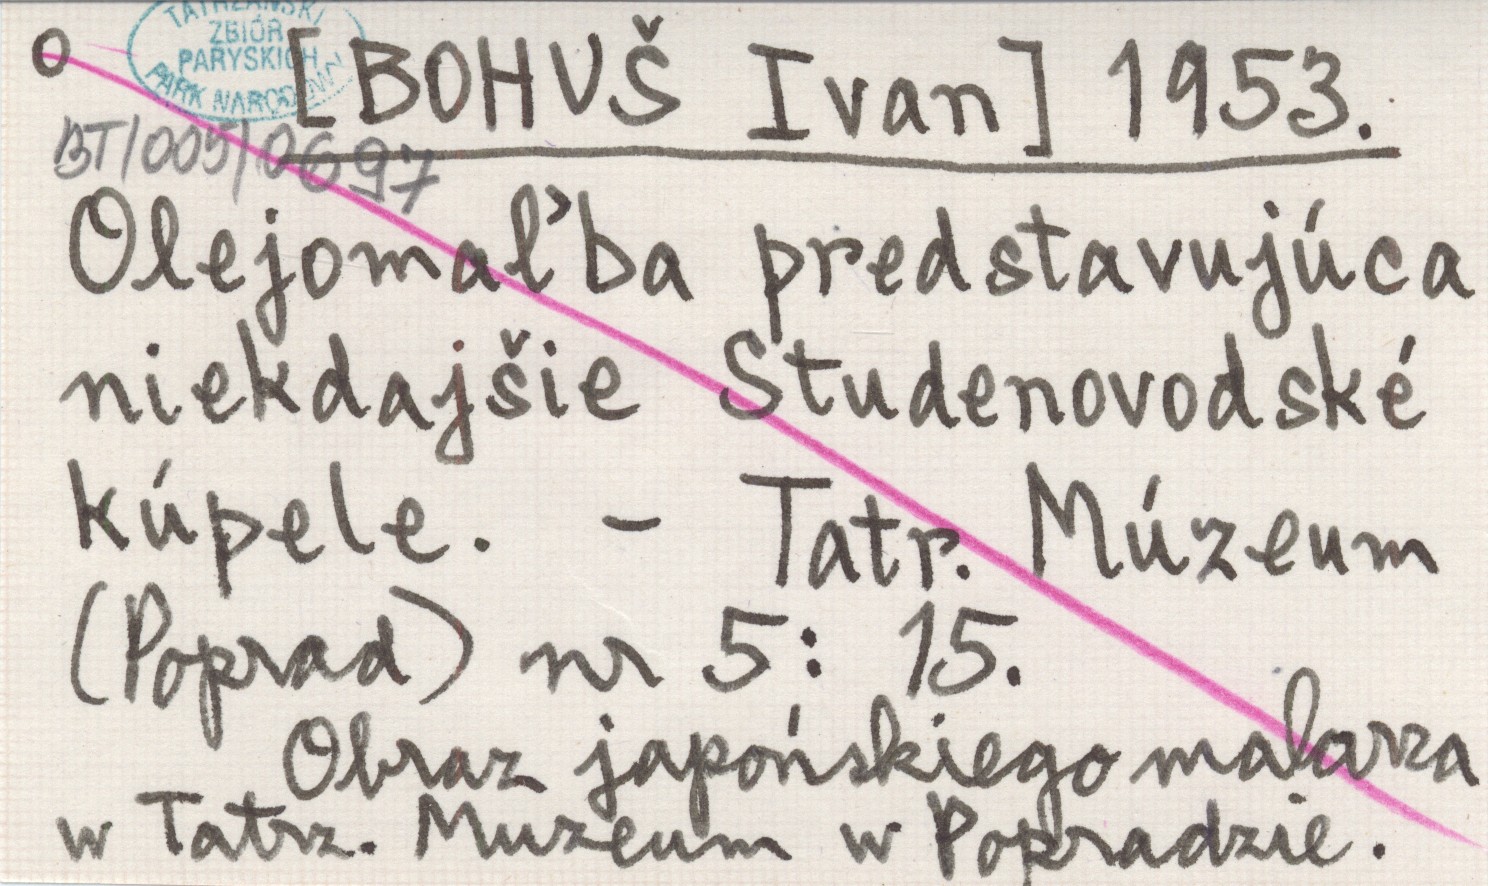 O
TATRZAŃSKI
ZBIÓR
PARYSKICH
PARK NARODOWY
[BOHUŠ Ivan] 1953.
BT/005/0697
Olejomaľba predstavujúca
niekdajšie Studenovodské
kúpele. – Tatr. Múzeum
(Poprad) nr 5: 15.
Obraz japońskiego malarza
w Tatrz. Muzeum w Popradzie.